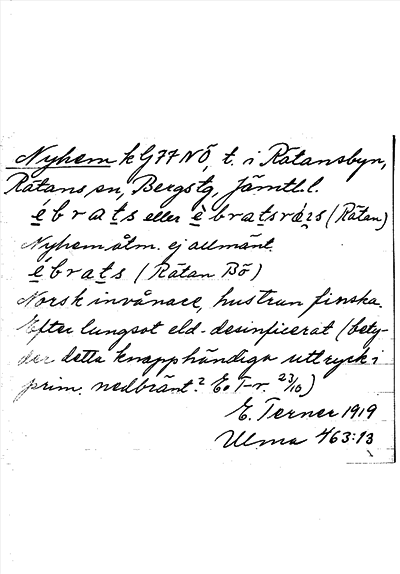 Nyhem k G77 NÖ, t. i Rätansbyn,
Rätans sn, Bergs tg, Jämtl. l.
é b r a t s eller é b r a t s r ä ɿ s (Rätan)
Nyhem åtm. ej allmänt.
é b r a t s (Rätan Bö)
Norsk invånare, hustrun finska.
Efter lungsot eld-desinficerat (bety-
der detta knapphändiga uttryck i
prim. nedbränt? E. T-r. 23/10)
E. Terner 1919
Ulma 463:13